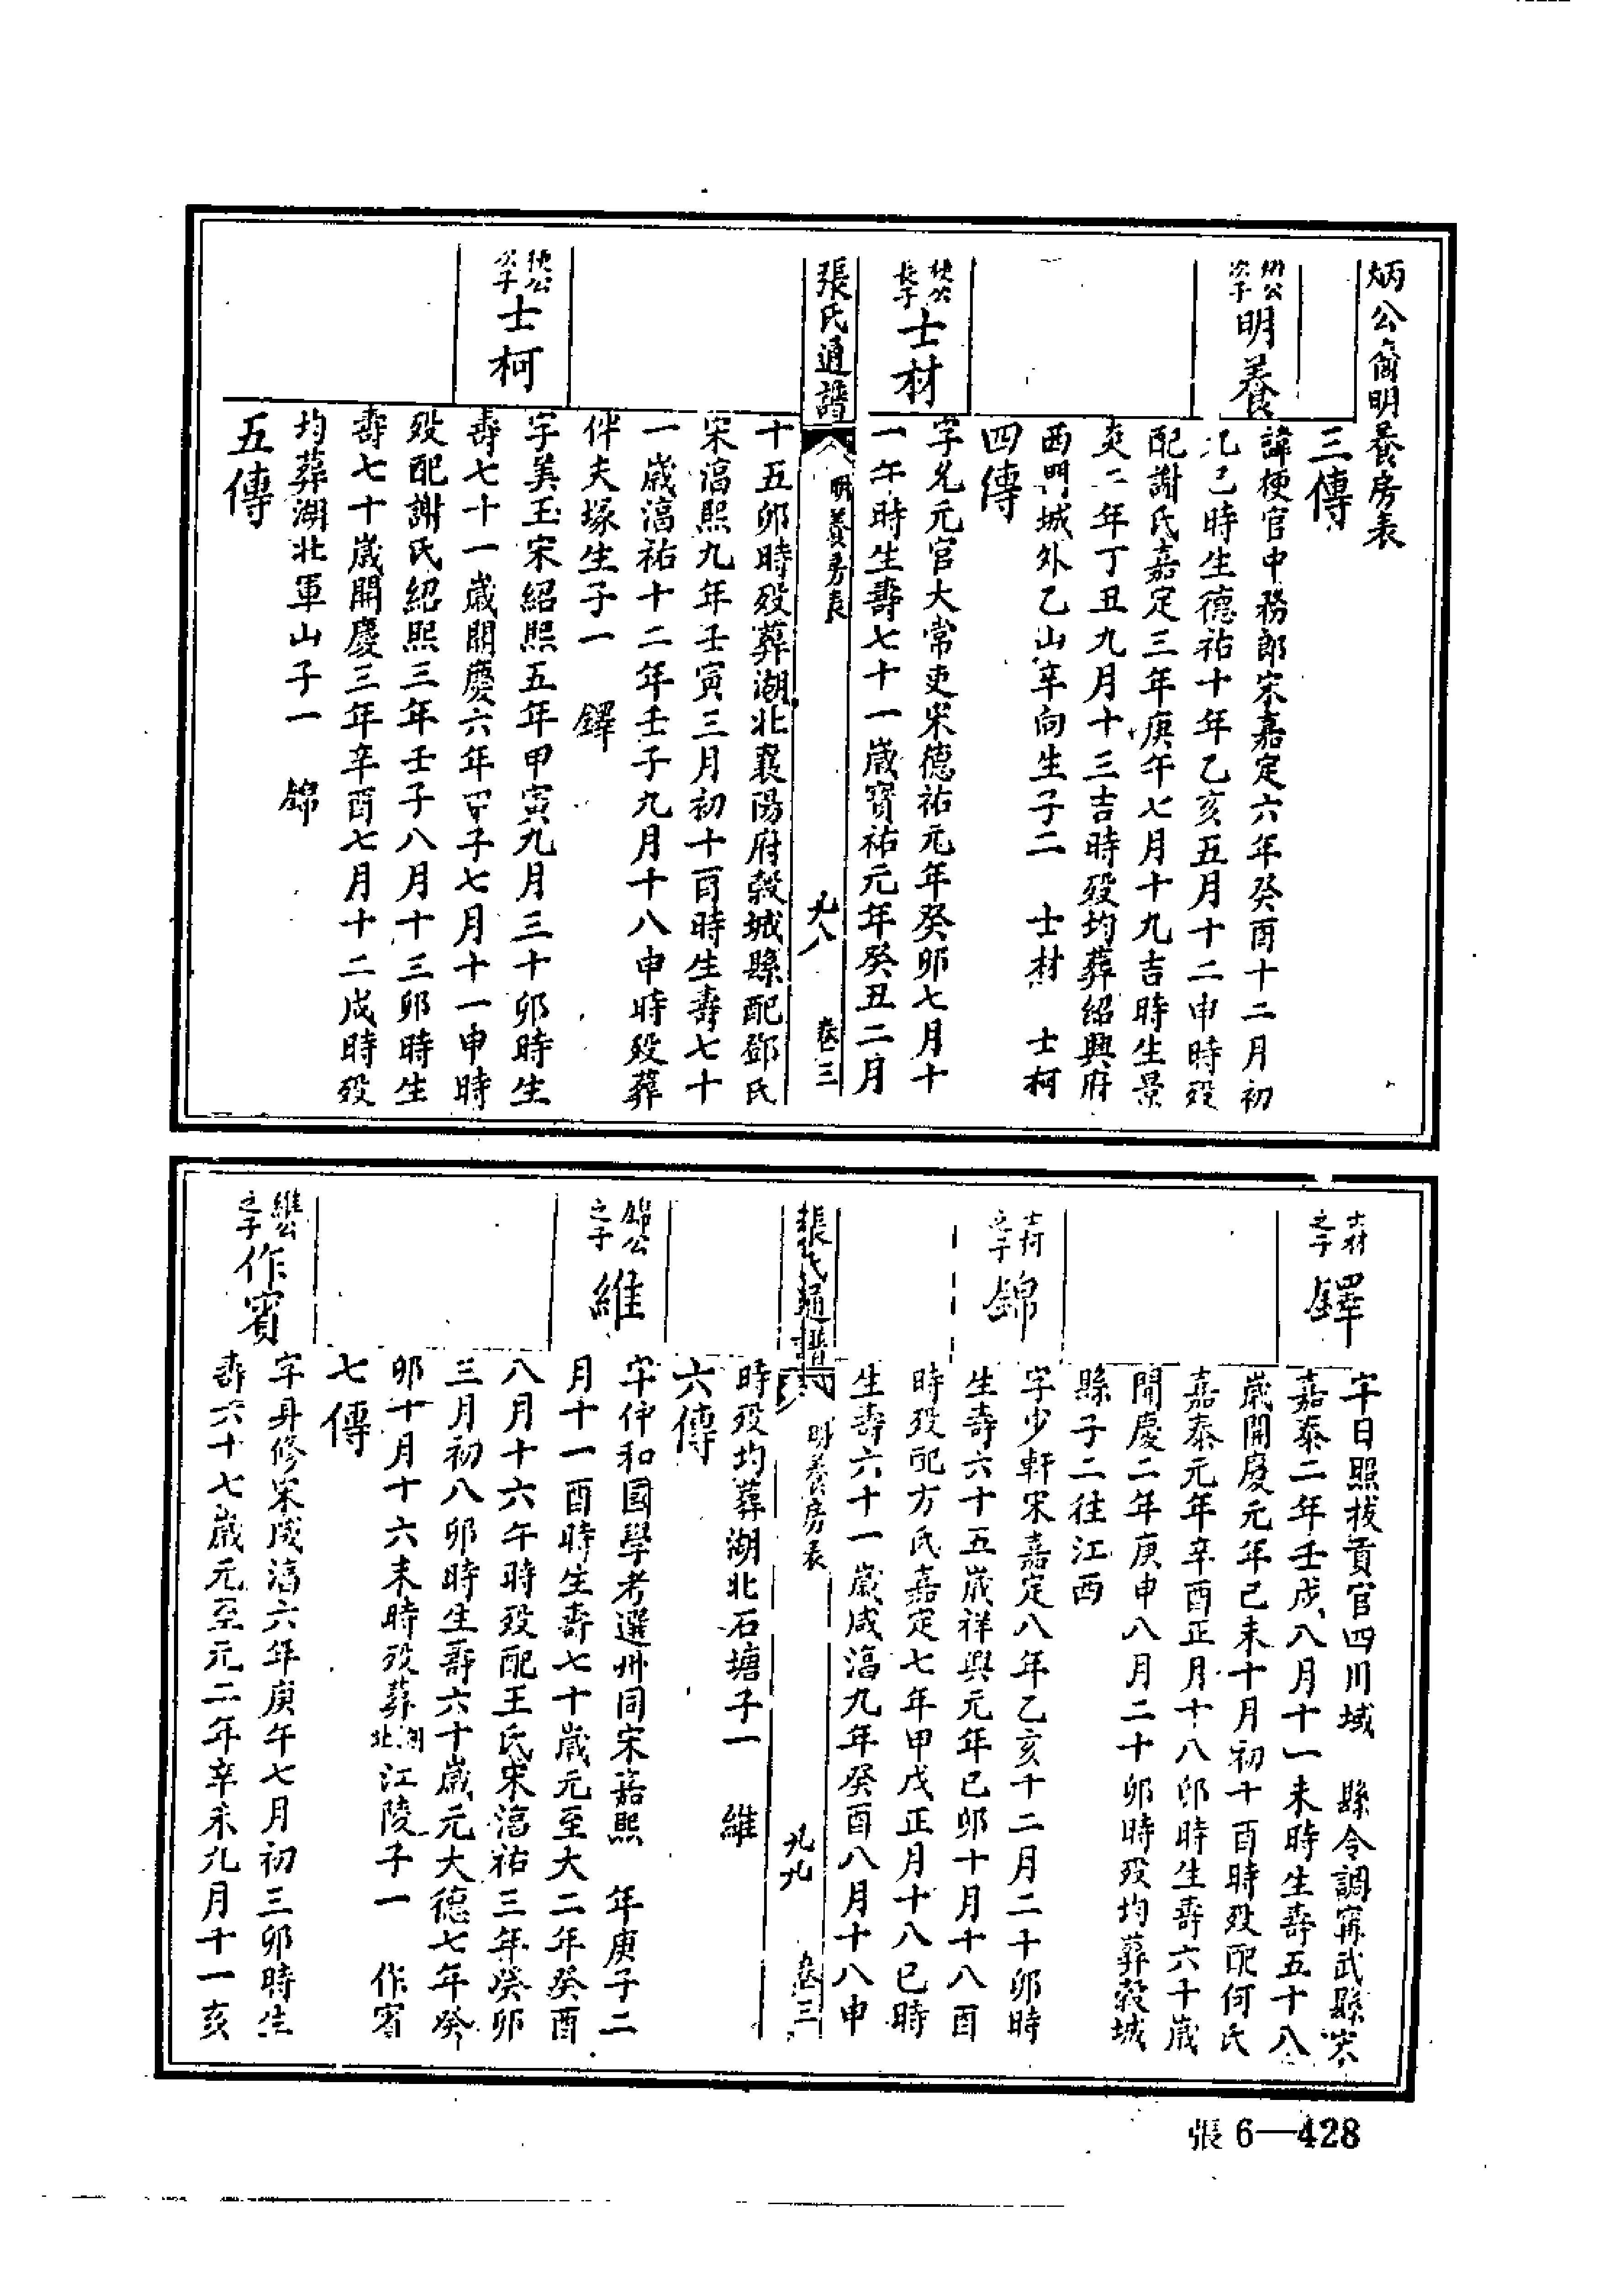 炳公裔明養房表
三傳
炳公次子
明養
諱梗官中務郎宋嘉定六年癸酉十二月初
九巳時生德祐十年乙亥五月十二申時殁
配謝氏嘉定三年庚午七月十九吉時生景
炎二年丁丑九月十三吉時殁均葬紹興府
西門城外乙山辛向生子二 士材 士柯
四傳
梗公長子
士材
字允元官大常吏宋德祐元年癸卯七月十
一午時生壽七十一歲寶祐元年癸丑二月
張氏通譜 明養房表 九八 卷三
十五卯時殁葬湖北襄陽府榖城縣配鄧氏
宋湻熙九年壬寅三月初十酉時生壽七十
一歲湻祐十二年壬子九月十八申時殁葬
伴夫塚生子一 鐸
梗公次子
士柯
字美玉宋紹熙五年甲寅九月三十卯時生
壽七十一歲開慶六年甲子七月十一申時
殁配謝氏紹熙三年壬子八月十三卯時生
壽七十歲開慶三年辛酉七月十二戌時殁
均葬湖北軍山子一 錦
五傳
士材之子
鐸
字日照拔貢官四川城 縣令調寗武縣宋
嘉泰二年壬戌八月十一未時生壽五十八
歲開慶元年己未十月初十酉時殁配何氏
嘉泰元年辛酉正月十八卯時生壽六十歲
開慶二年庚申八月二十卯時殁均葬榖城
縣子二往江西
士柯之子
錦
字少軒宋嘉定八年乙亥十二月二十卯時
生壽六十五歲祥興元年己卯十月十八酉
時殁配方氏嘉定七年甲戌正月十八巳時
生壽六十一歲咸湻九年癸酉八月十八申
張氏通譜 明養房表 九九 卷三
時殁均葬湖北石塘子一 維
六傳
錦公之子
維
字仲和國學考選州同宋嘉熙 年庚子二
月十一酉時生壽七十歲元至大二年癸酉
八月十六午時殁配王氏宋湻祐三年癸卯
三月初八卯時生壽六十歲元大德七年癸
卯十月十六未時殁葬湖北江陵子一 作賓
七傳
維公之子
作賓
字身修宋咸湻六年庚午七月初三卯時生
壽六十七歲元至元二年辛未九月十一亥
張 6—428